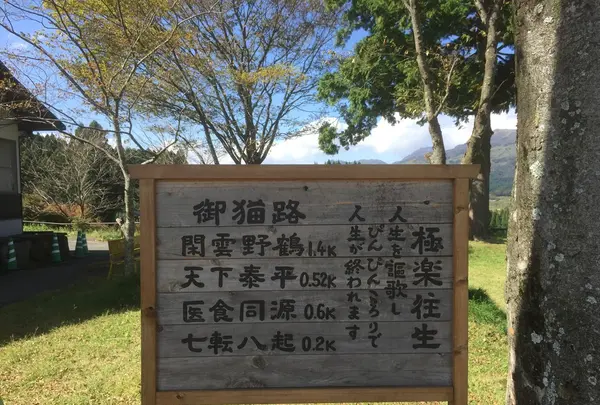 極楽往生
人生を謳歌し
ぴんぴんころりで
人生が終われます
御猫路
閑雲野鶴 1.4K
天下泰平 0.52K
医食同源 0.6K
七転八起 0.2K